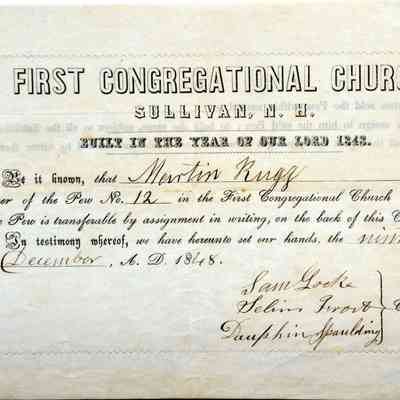 FIRST CONGREGATIONAL CHURC
SULLIVAN, N. H.
BUILT IN THE YEAR OF OUR LORD 1848.
Be it known, that Martin Rugg
er of the Pew No. 12 in the First Congregational Church
e Pew is transferable by assignment in writing, on the back of this C
In testimony whereof, we have hereunto set our hands, the nin
December, A. D. 1848.
Sam Locke
Selim Frost
Dauphin Spaulding